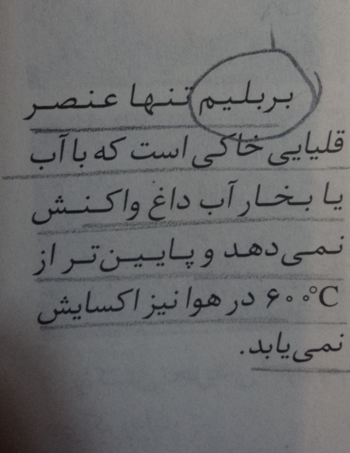 بربلیم تنها عنصر
قلیایی خاکی است که با آب
یا بخار آب داغ واکنش
نمی‌دهد و پایین‌تر از
۶۰۰°C در هوا نیز اکسایش
نمی‌یابد.